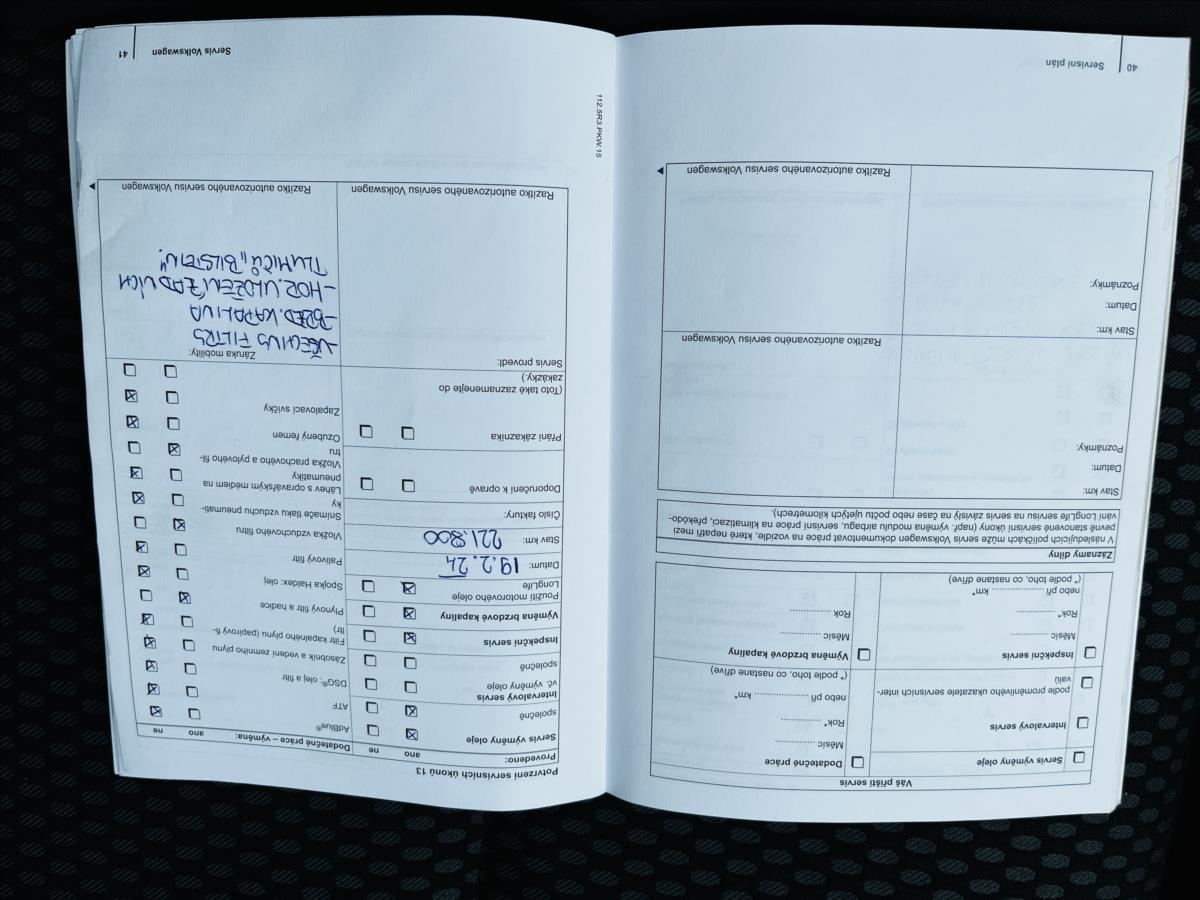 40 | Servisní plán
Váš příští servis
☐ Servis výměny oleje
☐ Intervalový servis
☐ podle proměnlivého ukazatele servisních inter-
valů
☐ Dodatečné práce
Měsíc ...............
Rok* ...............
nebo při .................. km*
(* podle toho, co nastane dříve)
☐ Inspekční servis
Měsíc ...............
Rok* ...............
nebo při .................. km*
(* podle toho, co nastane dříve)
☐ Výměna brzdové kapaliny
Měsíc ...............
Rok ...............
Záznamy dílny
V následujících políčkách může servis Volkswagen dokumentovat práce na vozidle, které nepatří mezi
pevně stanovené servisní úkony (např. výměna modulu airbagu, servisní práce na klimatizaci, překódo-
vání LongLife servisu na servis závislý na čase nebo počtu ujetých kilometrech).
Stav km:
Datum:
Poznámky:
Razítko autorizovaného servisu Volkswagen
Stav km:
Datum:
Poznámky:
Razítko autorizovaného servisu Volkswagen
112.5R3.PKW.15
Potvrzení servisních úkonů 13
Provedeno: ano ne
Servis výměny oleje ☒ ☐
společně ☒ ☐
Intervalový servis
vč. výměny oleje ☐ ☐
společně ☐ ☐
Inspekční servis ☒ ☐
Výměna brzdové kapaliny ☒ ☐
Použití motorového oleje
LongLife ☒ ☐
Datum: 19.2.24
Stav km: 221.800
Číslo faktury:
Doporučení k opravě ☐ ☐
Přání zákazníka ☐ ☐
(Toto také zaznamenejte do
zakázky.)
Servis provedl:
Razítko autorizovaného servisu Volkswagen
Dodatečné práce – výměna: ano ne
AdBlue® ☐ ☒
ATF ☐ ☒
DSG®: olej a filtr ☐ ☒
Zásobník a vedení zemního plynu ☐ ☒
Filtr kapalného plynu (papírový fi-
ltr) ☐ ☒
Plynový filtr a hadice ☒ ☐
Spojka Haldex: olej ☐ ☒
Palivový filtr ☐ ☒
Vložka vzduchového filtru ☒ ☐
Snímače tlaku vzduchu pneumati-
ky ☐ ☒
Láhev s opravářským médiem na
pneumatiky ☐ ☒
Vložka prachového a pylového fil-
tru ☒ ☐
Ozubený řemen ☐ ☒
Zapalovací svíčky ☐ ☒
☐ ☐
Záruka mobility:
-VŠECHNS FILTRS
-BRZD. KAPALINA
-HOR. ULOŽENÍ ZADNÍCH
TLUMIČŮ „BILSTEIN"
Razítko autorizovaného servisu Volkswagen
Servis Volkswagen | 41